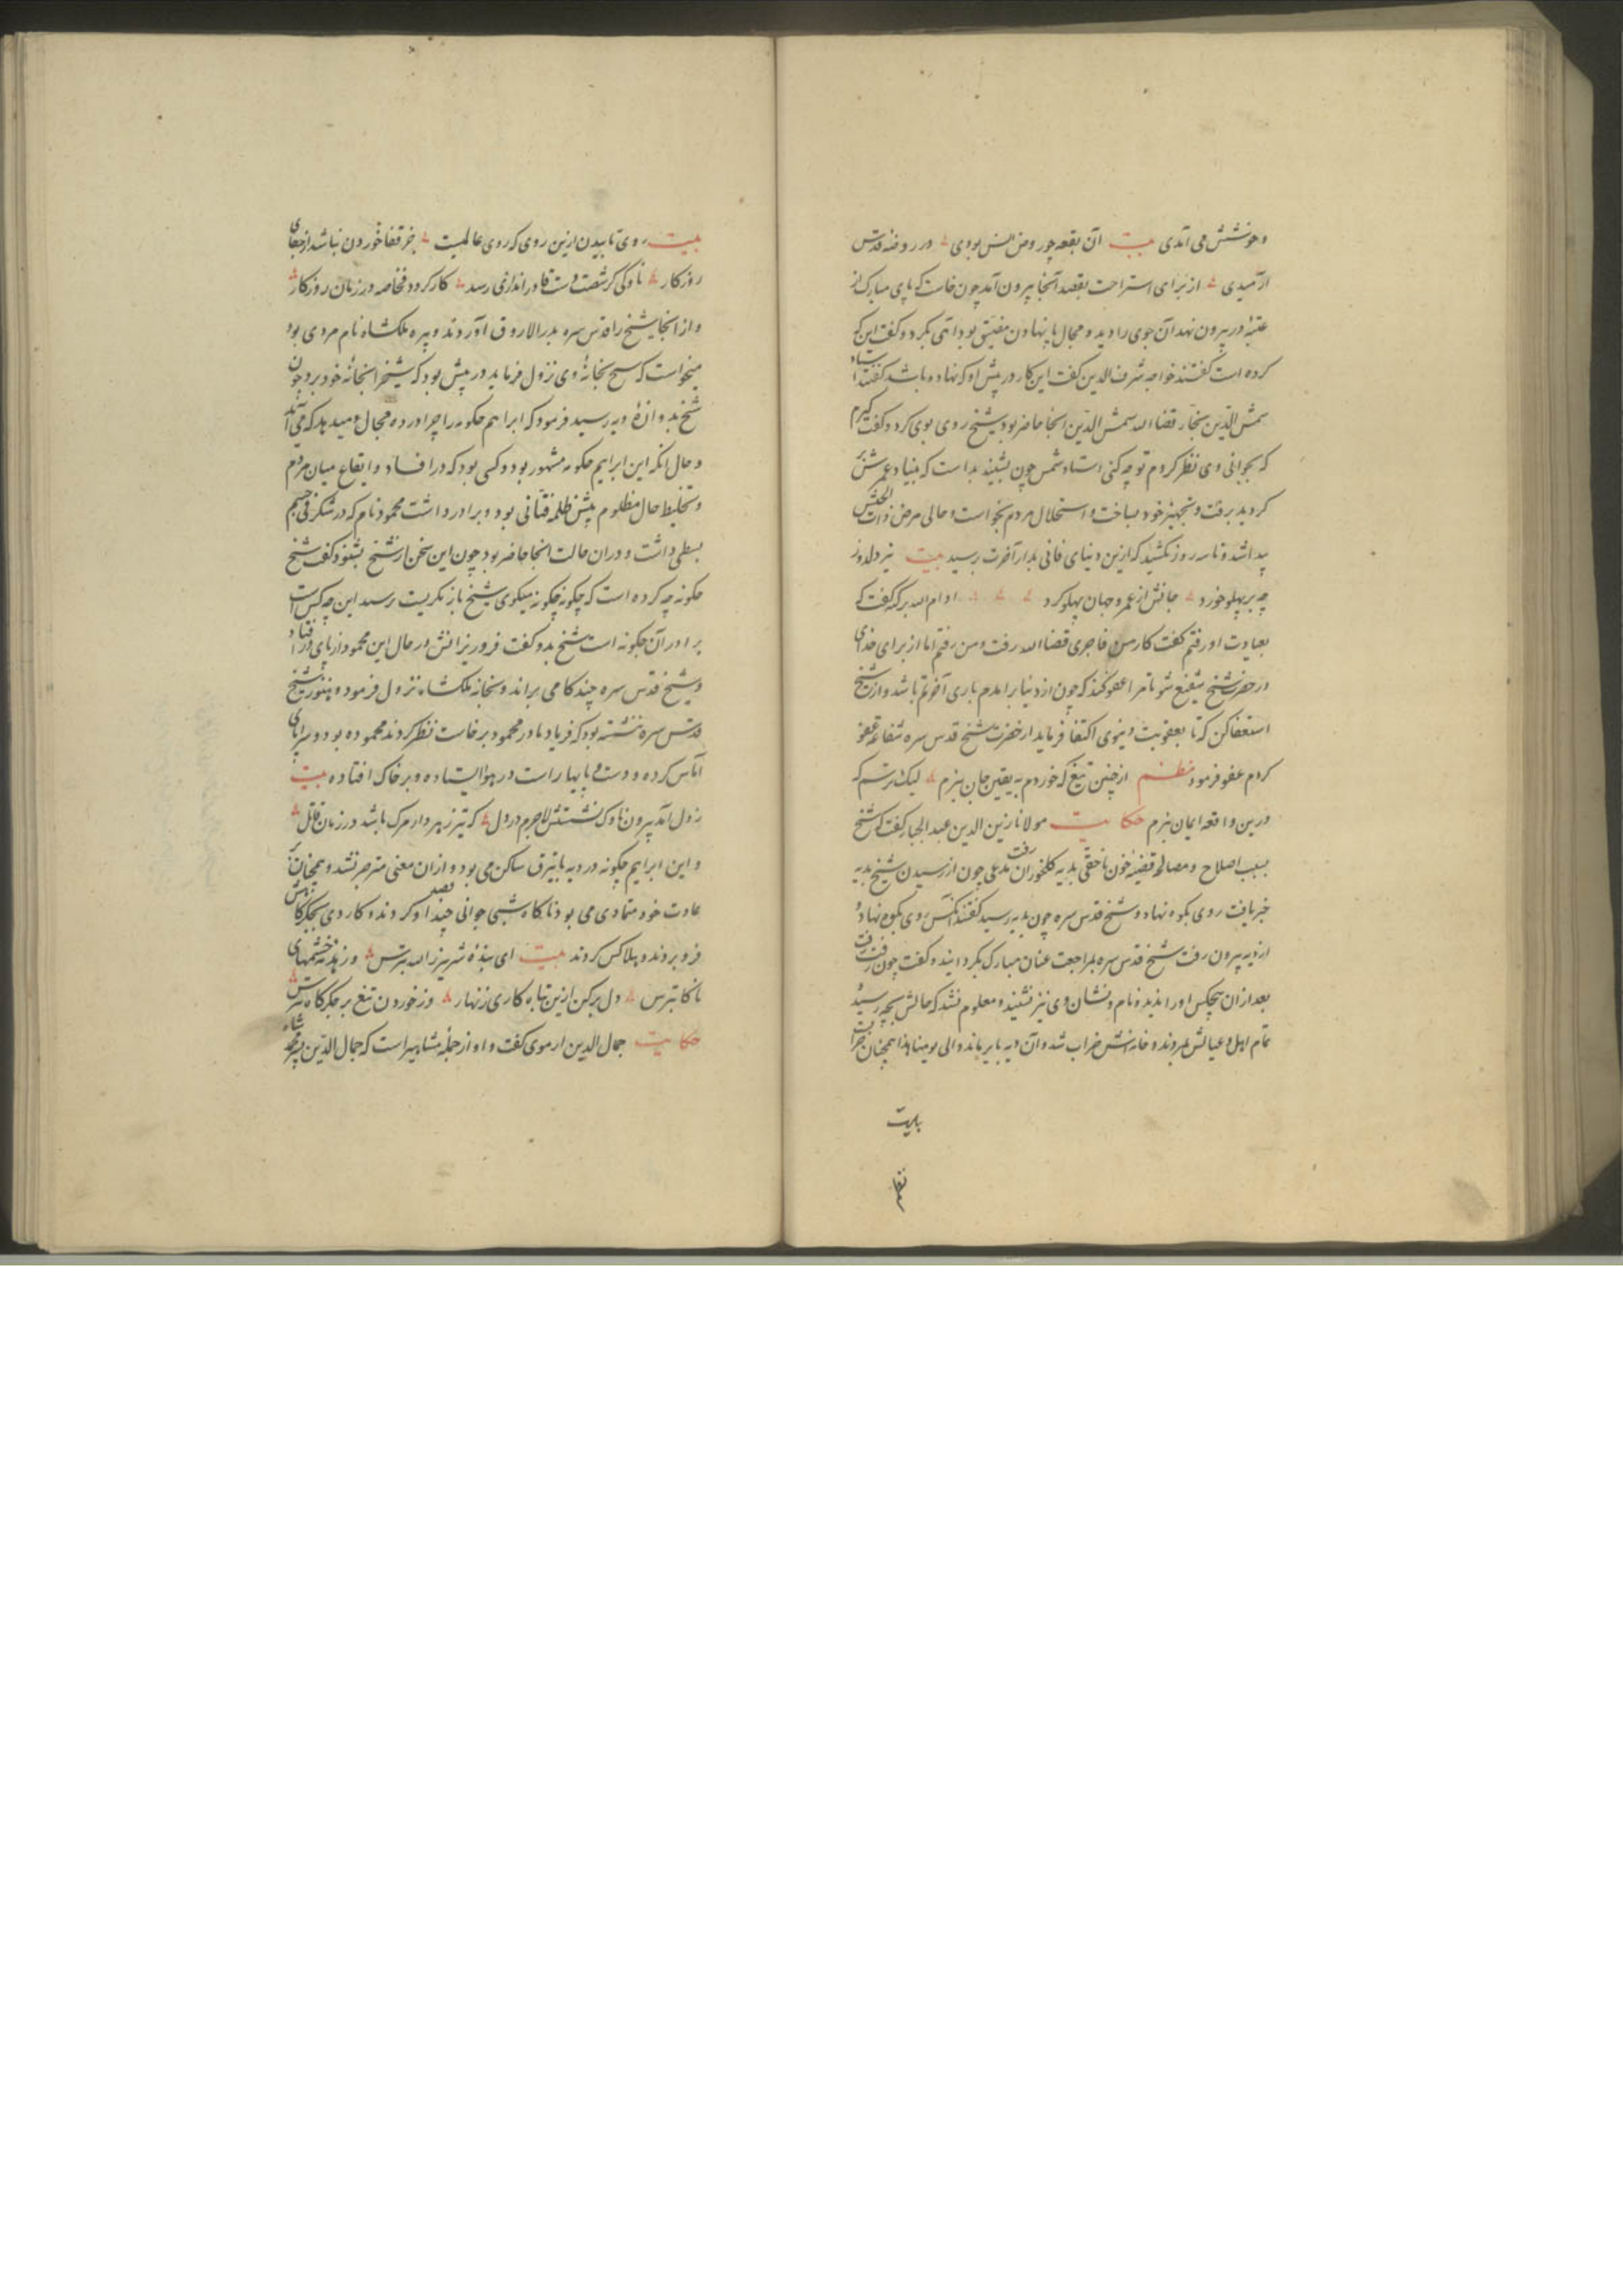 وخوشش می آمدی بیت آن بقعه چو روضٔ انس بودی در روضهٔ قدس
آرمیدی از برای استراحت بقصد آنجا بیرون آمد چون خاست که پای مبارک از
عتبهٔ در بیرون نهد آن جوی را دید و مجال پا نهادن مضیق بود آهی بکرد و گفت این که
کرده است گفتند خواجه شرف الدین گفت این کار در پیش او که نهاده باشد گفتند استاد
شمس الدین نجار قضا الله شمس الدین آنجا حاضر بود شیخ روی بوی کرد و گفت گیرم
که بجوانی وی نظر کردم تو چه کنی استاد شمس چون بشنید بدانست که بنیاد عمرش
گردید برفت و تجهیز خود بساخت و استحلال مردم بخواست و حالی مرض ذات الجنبش
پیدا شد و تا سه روز نکشید که ازین دنیای فانی بدار آخرت رسید بیت تیر دلدوز
چه بر پهلو خورد جانش از عمر و جهان پهلو کرد ادام الله برکته گفت که
بعیادت او رفتم گفت کار من فاجری قضا الله رفت و من رفتم اما از برای خدای
در حضرت شیخ شفیع شو تا مرا عفو کند که چون از دنیا برآمدم باری آخرتم باشد و از شیخ
استعفا کن که تا بعقوبت دنیوی اکتفا فرماید از حضرت شیخ قدس سره شفاعت عفو
کردم عفو فرمود نظم از چنین تیغ که خوردم به یقین جان نبرم لیک ترسم که
درین واقعه ایمان نبرم حکایت مولانا زین الدین عبد الجبار گفت که شیخ
بسبب اصلاح و مصالحهٔ قضیهٔ خون ناحقی بدیه کلخوران رفت مدعی چون از رسیدن شیخ بدیه
خبر یافت روی بکوه نهاد و شیخ قدس سره چون بدیه رسید گفتند آنکس روی بکوه نهاد و
از دیه بیرون رفت شیخ قدس سره بمراجعت عنان مبارک بگردانید و گفت چون رفت رفت
بعد از آن هیچکس او را ندید و نام و نشان وی نیز نشنید و معلوم نشد که حالش بچه رسید و
تمام اهل و عیالش بمردند و خانه اش خراب شد و آن دیه بایر بماند و الی یومنا هذا همچنان خرابست
بیت روی تابیدن ازین روی که روی عالمیست جز قفا خوردن نباشد از جفای
روزگار ناوکی کز شصت و شست قادر اندازی رسد کارگر بود خاصه در زمان روزگار
و از آنجا شیخ را قدس سره بدر الاروق آوردند و پیره ملکشاه نام مردی بود
میخواست که شیخ بخانهٔ وی نزول فرماید در پیش بود که شیخ را بخانهٔ خود برد چون
شیخ بدروازهٔ دیه رسید فرمود که ابراهیم چگونه را چرا در ده مجال میدهد که می آید
و حال آنکه این ابراهیم چگونه مشهور بود و کسی بود که در افساد و ایقاع میان مردم
و تخلیط حال مظلوم پیش ظلمه فتانی بود و برادر داشت محمود نام که در شگرفی جسم
بسطی داشت و در آن حالت آنجا حاضر بود چون این سخن از شیخ بشنود گفت شیخ
چگونه چه کرده است که چگونه چگونه میگوی شیخ باز نگریست پرسید این چه کس است
برادر آن چگونه است شیخ بدو گفت فرو ریزانش در حال این محمود از پای در افتاد
و شیخ قدس سره چند گامی براند و بخانه ملکشاه نزول فرمود و هنوز شیخ
قدس سره ننشسته بود که فریاد مادر محمود برخاست نظر کردند محمود ده بود و سراپای
آماس کرده و دست و پایها راست در هوا ایستاده و بر خاک افتاده بیت
ز دل آمد بیرون ناوک نشستش لاجرم در دل که تیر زهردار مرگ باشد در زمان قاتل
و این ابراهیم چگونه در دیه بایترق ساکن می بود و از آن معنی منزجر نشد و همچنان بر
عادت خود متمادی می بود ناگاه شبی جوانی چند قصد او کردند و کاردی بجگرگاهش
فرو بردند و هلاکش کردند بیت ای بندهٔ شرمزار الله بترس وز نیزه خشمهای
ناگاه بترس دل برکن ازین تباه کاری زنهار وز خوردن تیغ بر جگرگاه بترس
حکایت جمال الدین ارموی گفت و او از جملهٔ مشاهیر است که جمال الدین پیر محمد شاه
بایست
نعلم